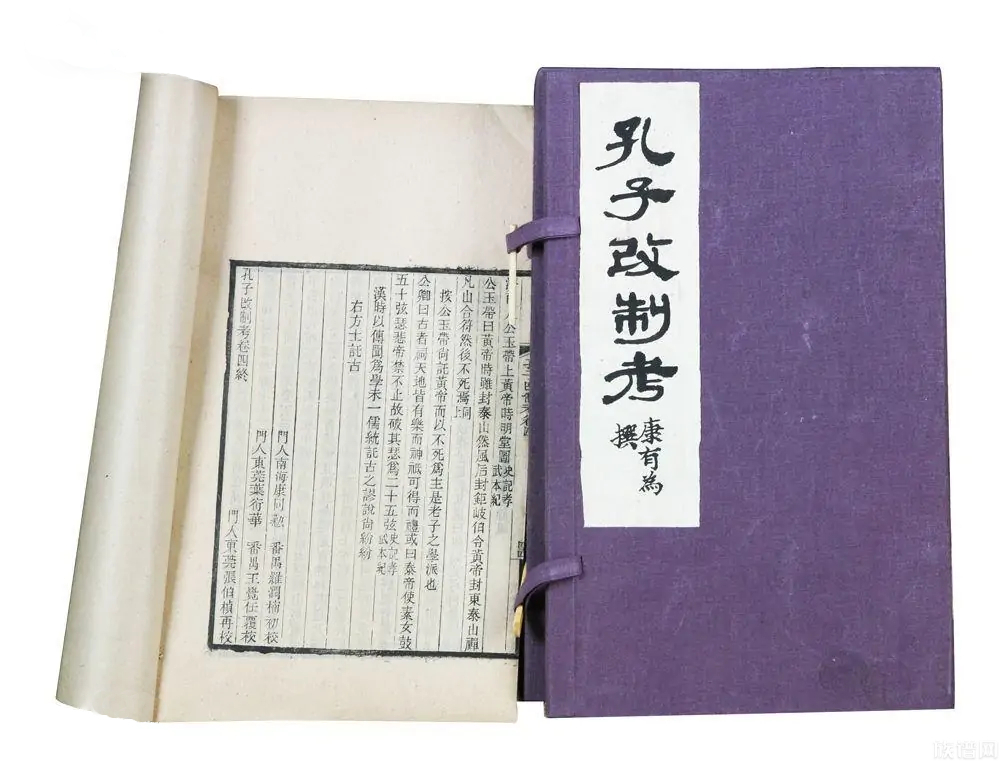 孔子改制考
康有為
撰
公玉帶上黃帝時明堂圖史記孝武本紀
公玉帶曰黃帝時雖封泰山然風后封鉅岐伯令黃帝封東泰山禪
凡山合符然後不死焉同上
按公玉帶尚託黃帝而以不死為主是老子之學派也
公卿曰古者祠天地皆有樂而神祇可得而禮或曰泰帝使素女鼓
五十弦瑟悲帝禁不止故破其瑟為二十五弦史記孝武本紀
漢時以傳聞為學未一儒統託古之謬說尚紛紛
右方士託古
門人南海康同勲 番禺羅潤楠初校
門人東莞葉衍華 番禺王覺任覆校
門人東莞張伯楨再校
孔子改制考卷四終
族譜网